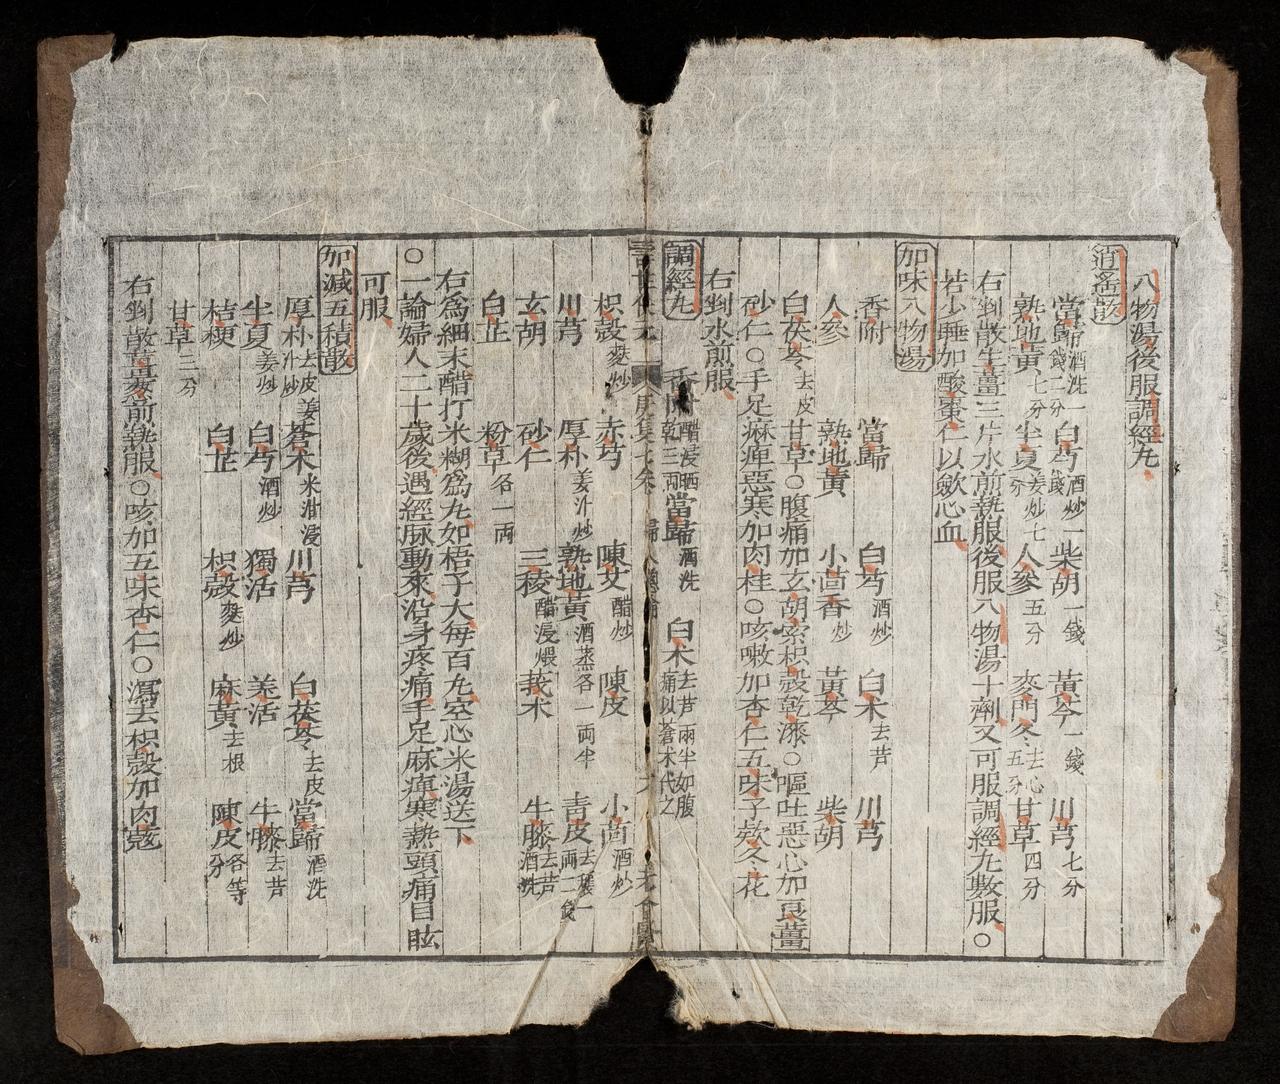 八物湯後服調經丸
逍遙散
當歸酒洗一錢二分 白芍酒炒一錢 柴胡一錢 黃芩一錢 川芎七分
熟地黃七分 半夏姜炒七分 人參五分 麥門冬去心五分 甘草四分
右剉散生薑三片水煎熱服後服八物湯十劑又可服調經丸數服○
若少睡加酸棗仁以歛心血
加味八物湯
香附 當歸 白芍酒炒 白朮去芦 川芎
人參 熟地黃 小茴香炒 黃芩 柴胡
白茯苓去皮 甘草○腹痛加玄胡索枳殼乾漆○嘔吐惡心加良薑
砂仁○手足麻痺惡寒加肉桂○咳嗽加杏仁五味子欵冬花
右剉水煎服
調經丸 香附醋浸晒乾三兩 當歸酒洗 白朮去芦兩半如腹痛以蒼朮代之
壽世保元 庚集七卷
枳殼麩炒 赤芍 陳艾醋炒 陳皮 小茴酒炒
川芎 厚朴姜汁炒 熟地黃酒蒸各一兩半 青皮去穰一兩二錢
玄胡 砂仁 三稜醋浸煨 莪朮 牛膝去芦酒洗
白芷 粉草各一兩
右為細末醋打米糊為丸如梧子大每百丸空心米湯送下
○一論婦人二十歲後遇經脉動來沿身疼痛手足麻痺寒熱頭痛目眩
可服
加減五積散
厚朴去皮姜汁炒 蒼朮米泔浸 川芎 白茯苓去皮 當歸酒洗
半夏姜炒 白芍酒炒 獨活 羌活 牛膝去芦
桔梗 白芷 枳殼麩炒 麻黃去根 陳皮各等分
甘草三分
右剉散薑葱煎熱服○咳加五味杏仁○瀉去枳殼加肉蔻